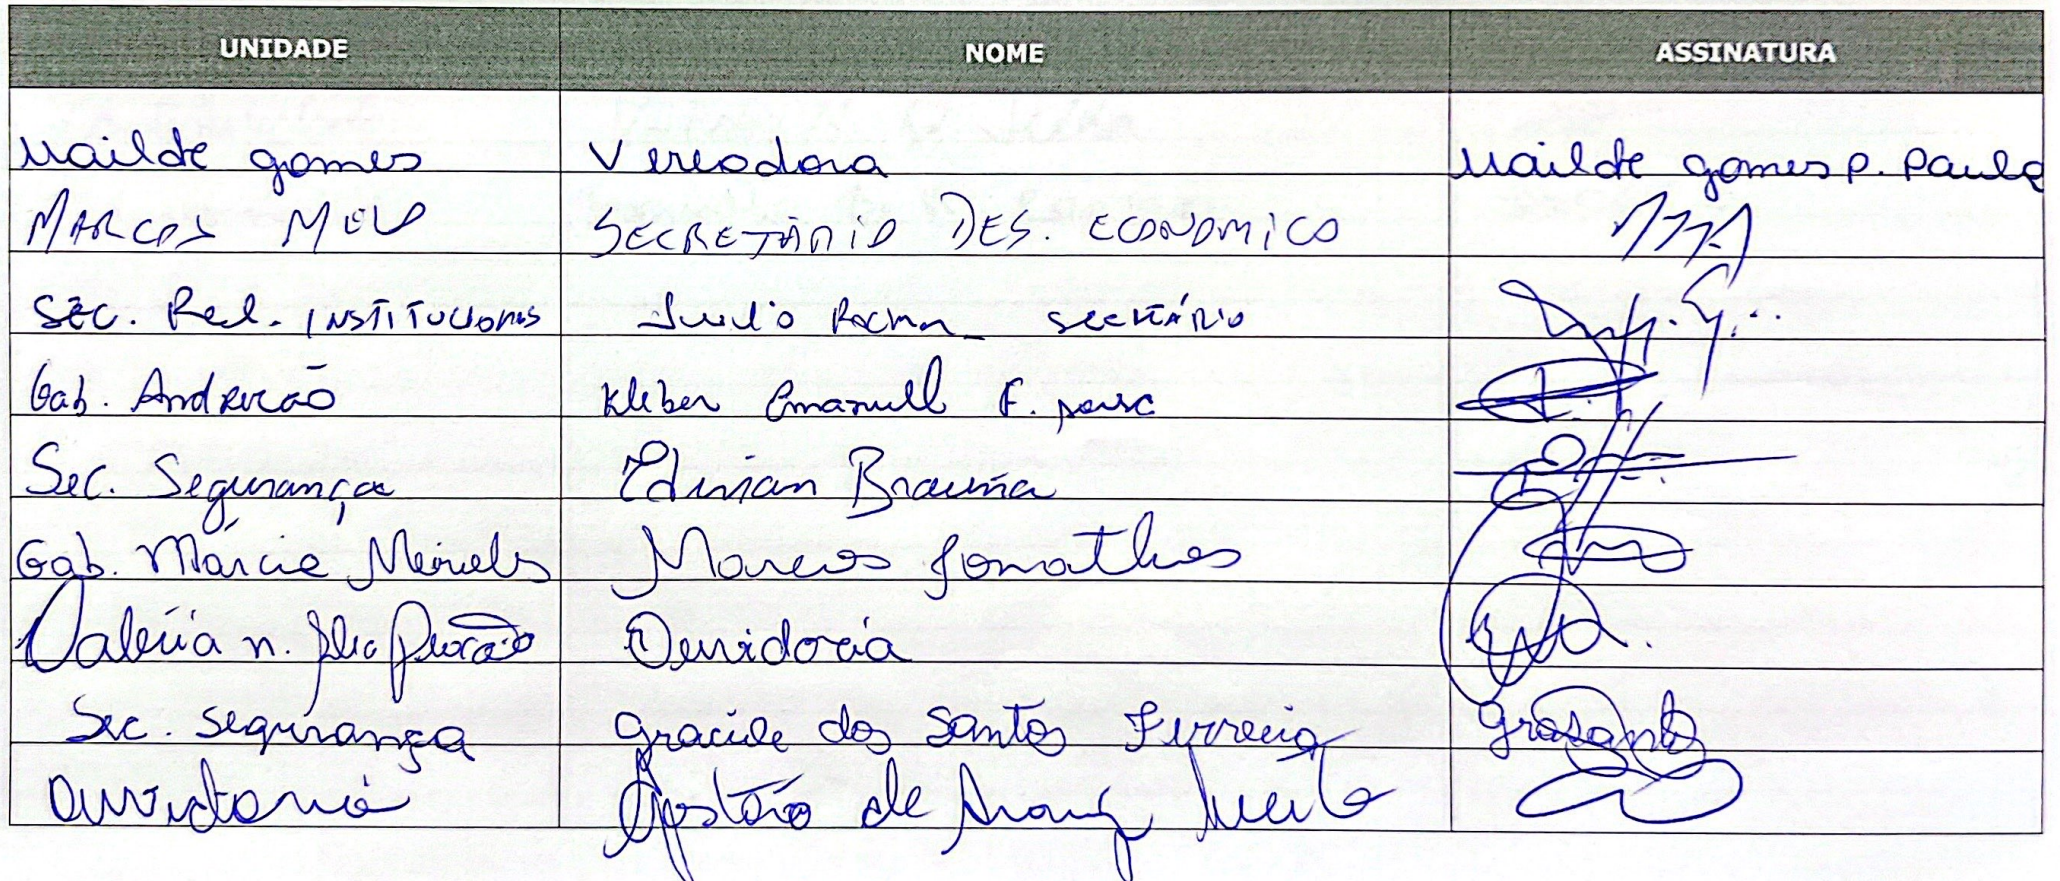 UNIDADE NOME ASSINATURA
Nailde gomes Vereadora Nailde gomes P. Paula
MARCOS MELO SECRETÁRIO DES. ECONOMICO
SEC. Rel. INSTITUCIONAIS Rocha SECRETÁRIO
Gab. Andrezão Kleber Emanuell F.
Sec. Segurança Edivan Brauna
Gab. Márcia Marcos Jonathas
Valéria n. Ouvidoria
Sec. Segurança Graciele dos Santos Ferreira
Ouvidoria de